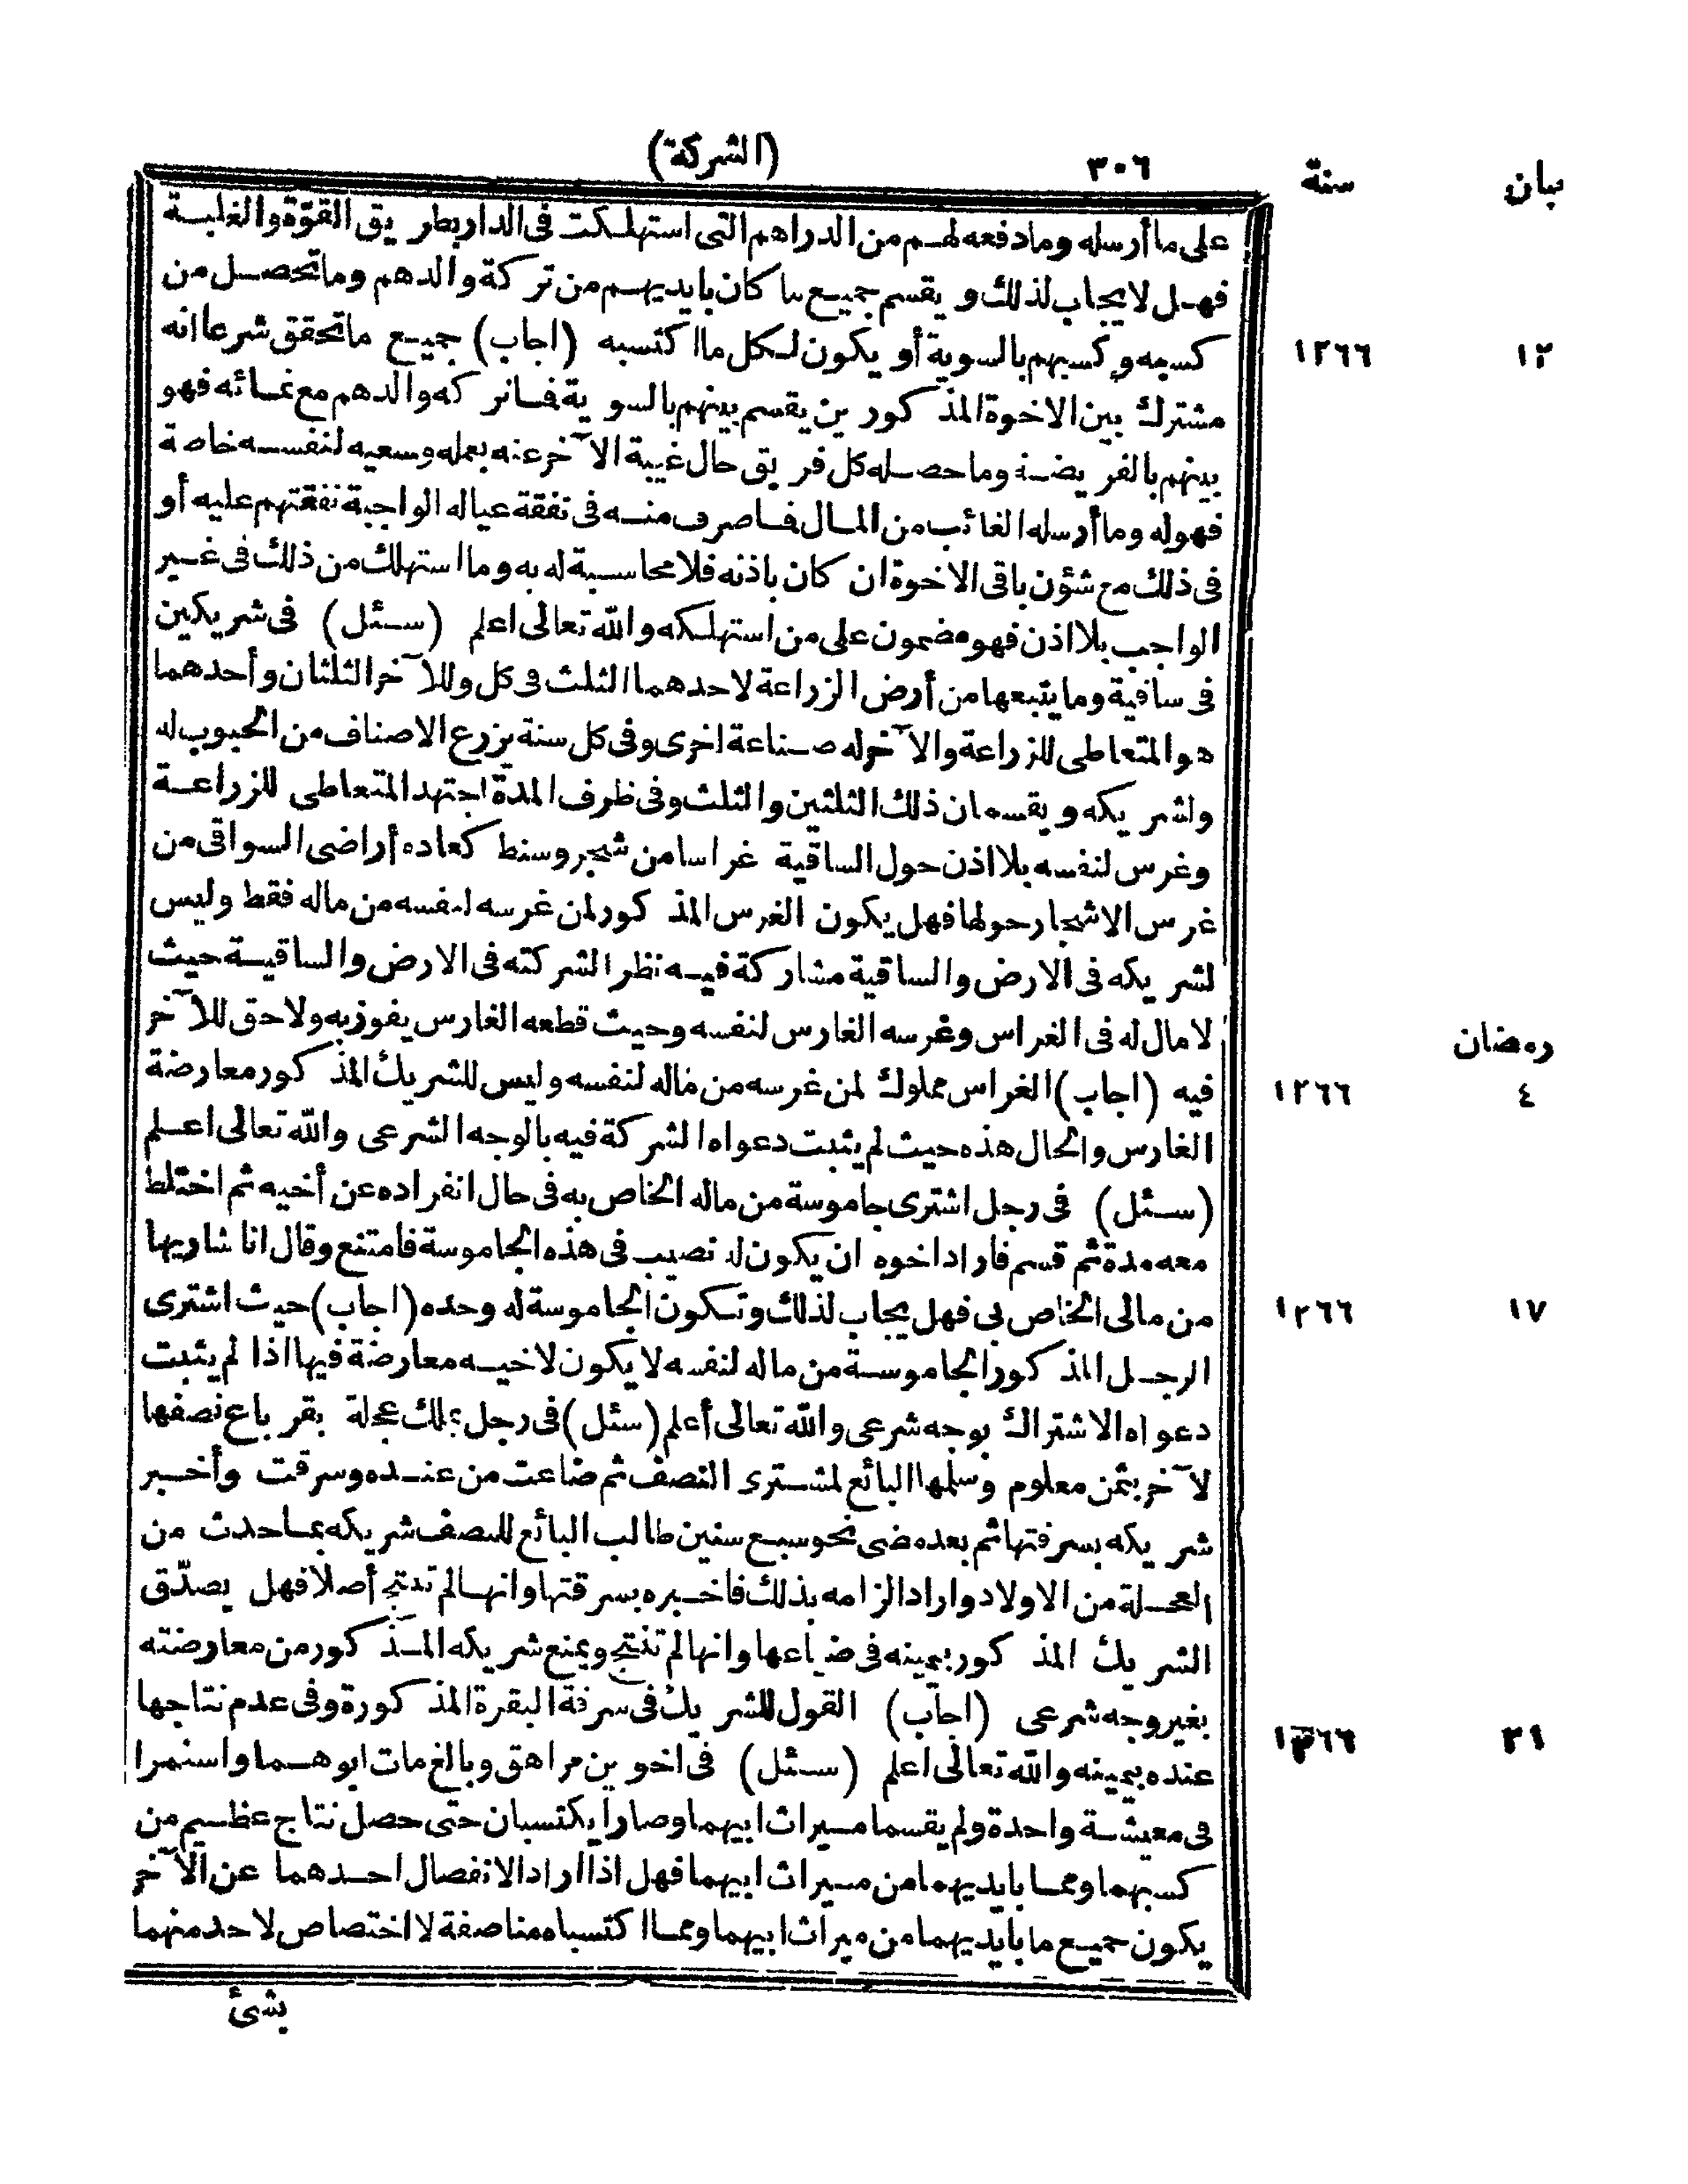 بيان سنة ٣٠٦ (الشركة)
على ما أرسله وما دفعه لهم من الدراهم التى استهلكت فى الدار بطريق القوّة والغلبة
فهل لا يجاب لذلك ويقسم جميع ما كان بايديهم من تركة والدهم وما تحصل من
١٢ ١٢٦٦ كسبه وكسبهم بالسوية أو يكون لكل ما اكتسبه (اجاب) جميع ما تحقق شرعا انه
مشترك بين الاخوة المذكورين يقسم بينهم بالسوية فما تركه والدهم مع نمائه فهو
بينهم بالفريضة وما حصله كل فريق حال غيبة الآخر عنه بعمله وسعيه لنفسه خاصة
فهو له وما أرسله الغائب من المال فما صرف منه فى نفقة عياله الواجبة نفقتهم عليه أو
فى ذلك مع شؤن باقى الاخوة ان كان باذنه فلا محاسبة له به وما استهلك من ذلك فى غير
الواجب بلا اذن فهو مضمون على من استهلكه والله تعالى اعلم (سئل) فى شريكين
فى ساقية وما يتبعها من أرض الزراعة لاحدهما الثلث فى كل وللآخر الثلثان وأحدهما
هو المتعاطى للزراعة والآخر له صناعة اخرى وفى كل سنة يزرع الاصناف من الحبوب له
ولشريكه ويقسمان ذلك الثلثين والثلث وفى ظرف المدة اجتهد المتعاطى للزراعة
وغرس لنفسه بلا اذن حول الساقية غراسا من شجر وسنط كعادة أراضى السواقى من
غرس الاشجار حولها فهل يكون الغرس المذكور لمن غرسه لنفسه من ماله فقط وليس
لشريكه فى الارض والساقية مشاركة فيه نظرا لشركته فى الارض والساقية حيث
رمضان لا مال له فى الغراس وغرسه الغارس لنفسه وحيث قطعه الغارس يفوز به ولا حق للآخر
٤ ١٢٦٦ فيه (اجاب) الغراس مملوك لمن غرسه من ماله لنفسه وليس للشريك المذكور معارضة
الغارس والحال هذه حيث لم يثبت دعواه الشركة فيه بالوجه الشرعى والله تعالى اعلم
(سئل) فى رجل اشترى جاموسة من ماله الخاص به فى حال انفراده عن أخيه ثم اختلط
معه مدة ثم قسم فاراد اخوه ان يكون له نصيب فى هذه الجاموسة فامتنع وقال انا شاريها
١٧ ١٢٦٦ من مالى الخاص بى فهل يجاب لذلك وتكون الجاموسة له وحده (اجاب) حيث اشترى
الرجل المذكور الجاموسة من ماله لنفسه لا يكون لاخيه معارضة فيها اذا لم يثبت
دعواه الاشتراك بوجه شرعى والله تعالى أعلم (سئل) فى رجل يملك عجلة بقر باع نصفها
لآخر بثمن معلوم وسلمها البائع لمشترى النصف ثم ضاعت من عنده وسرقت وأخبر
شريكه بسرقتها ثم بعد مضى نحو سبع سنين طالب البائع للنصف شريكه بما حدث من
العجلة من الاولاد واراد الزامه بذلك فاخبره بسرقتها وانها لم تنتج أصلا فهل يصدّق
الشريك المذكور بيمينه فى ضياعها وانها لم تنتج ويمنع شريكه المذكور من معارضته
٢١ ١٢٦٦ بغير وجه شرعى (اجاب) القول للشريك فى سرقة البقرة المذكورة وفى عدم نتاجها
عنده بيمينه والله تعالى اعلم (سئل) فى اخوين مراهق وبالغ مات ابوهما واستمرا
فى معيشة واحدة ولم يقسما ميراث ابيهما وصارا يكتسبان حتى حصل نتاج عظيم من
كسبهما ومما بايديهما من ميراث ابيهما فهل اذا اراد الانفصال احدهما عن الآخر
يكون جميع ما بايديهما من ميراث ابيهما ومما اكتسباه مناصفة لا اختصاص لاحد منهما
بشئ